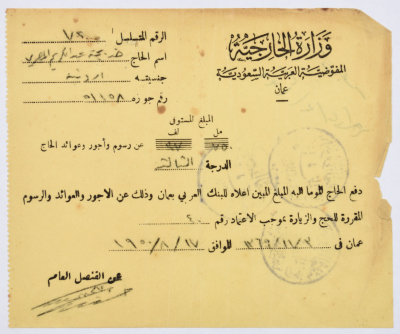 وزارة الخارجية
المفوضية العربية السعودية
عمان
الرقم المتسلسل
اسم الحاج خديجة عبد الكريم
جنسيته اردنية
رقم جوازه ٩١١٥٨
المبلغ المستوفى
مل لف
٧٥٠ ٣٧ عن رسوم وأجور وعوائد الحاج
الدرجة الثالثة
دفع الحاج الموما اليه المبلغ المبين اعلاه للبنك العربي بعمان وذلك عن الاجور والعوائد والرسوم
المقررة للحج والزيارة بموجب الاعتماد رقم ٤٠
عمان في ١٣٦٩/١١/٣ الموافق ١٩٥٠/٨/١٧
عن القنصل العام